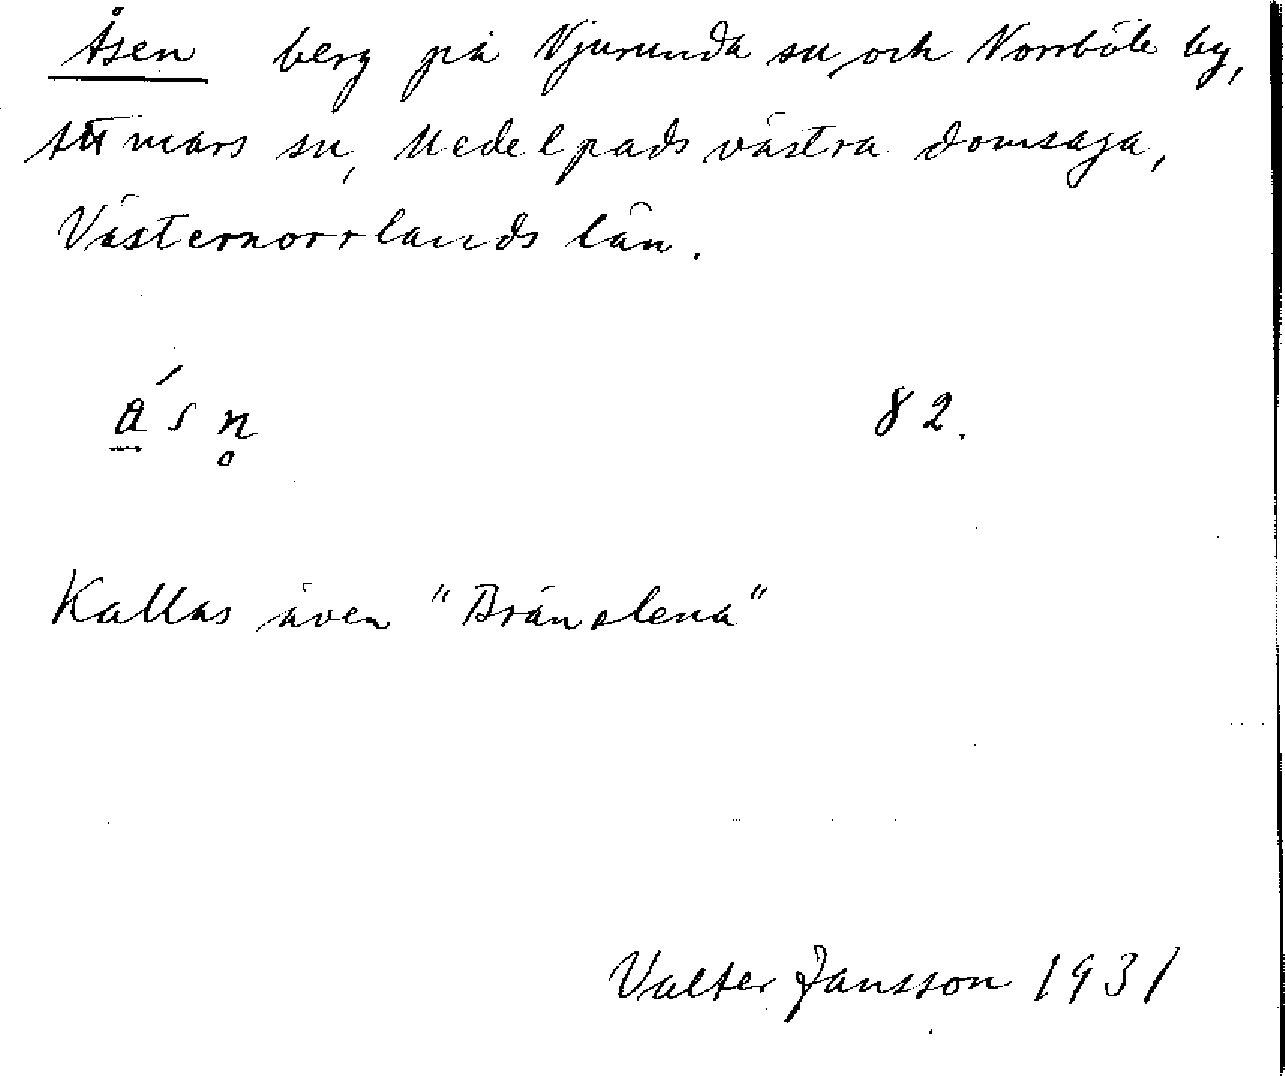 Åsen berg på Njurunda sn och Norrböle by,
Attmars sn, Medelpads västra domsaga,
Västernorrlands län.
á̲sn̥ 82.
Kallas även "Brändena"
Valter Jansson 1931